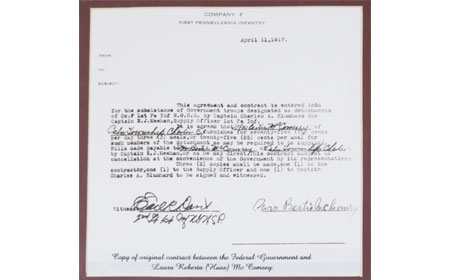 COMPANY F
FIRST PENNSYLVANIA INFANTRY
April 11,1917.
FROM:
TO:
SUBJECT:
This agreement and contract is entered into
for the subsistence of Government troops designated as detachments
of Co.F 1st Pa Inf N.G.U.S. by Captain Charles A.
Captain E.J.Meehan,Supply Officer 1st Pa Inf.
It is agreed that
furnishes for seventy-five (75) cents
per day three (3) meals,or twenty-five (25) cents per meal for
such members of the detachment as may be required to be supplied.
Bills are payable to
by Captain E.J.Meehan,or as he may direct.This contract subject to
cancellation at the convenience of the Government by its representatives.
Three (3) copies shall be made,one (1) to the
contractor,one (1) to the Supply Officer and one (1) to Captain
Charles A. to be signed and witnessed.
Witness
Copy of original contract between the Federal Government and
Laura Roberta (Huss) Mc Comsey.